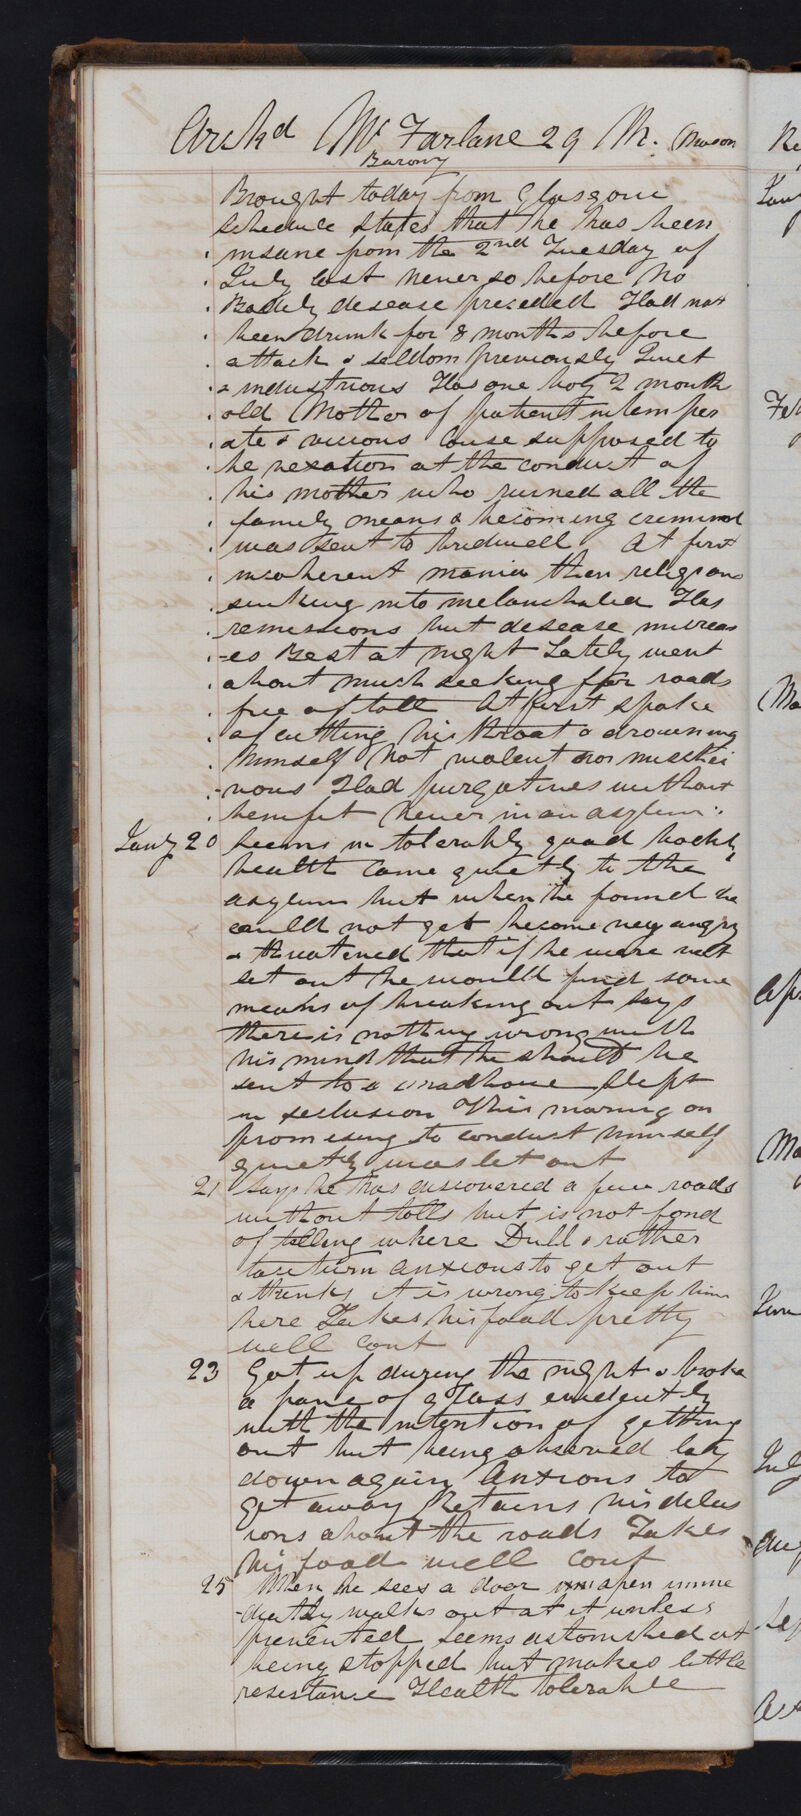 Archd McFarlane 29 M. Mason
Barony
Brought today from Glasgow
schedule states that he has been
insane from the 2nd Tuesday of
July last never so before No
Bodily desease preceded Had not
been drunk for 8 months before
attack & seldom previously Quiet
& industrious Has one boy 2 month
old Mother of patient intemper
ate & vicious Cause supposed to
be vexation at the conduct of
his mother who ruined all the
family means & becoming criminal
was sent to bridwell At first
incoherent mania then religious
sinking into melancholia Has
remissions but desease increas
-es Best at night Lately went
about much seeking for roads
free of toll At first spoke
of cutting his throat & drowning
himself Not violent nor mischei
-vous Had purgatives without
benefit Never in an asylum
Jany 20 Seems in tolerably good bodily
health Came quietly to the
asylum but when he found he
could not get become very angry
& threatened that if he were not
let out he would find some
means of breaking out Says
there is nothing wrong with
his mind that he should be
sent to a madhouse Slept
in seclusion This morning on
promising to conduct himself
quietly was let out
21 Says he has discovered a few roads
without tolls but is not fond
of telling where Dull & rather
taciturn anxious to get out
& thinks it is wrong to keep him
here Takes his food pretty
well Cont
23 Got up during the night & broke
a pane of glass evidently
with the intention of getting
out but being observed lay
down again Anxious to
get away Retains his delus
ions about the roads Takes
his food well Cont
25 When he sees a door open imme
-diately walks out at it unless
prevented Seems astonished at
being stopped but makes little
resistance Health tolerable